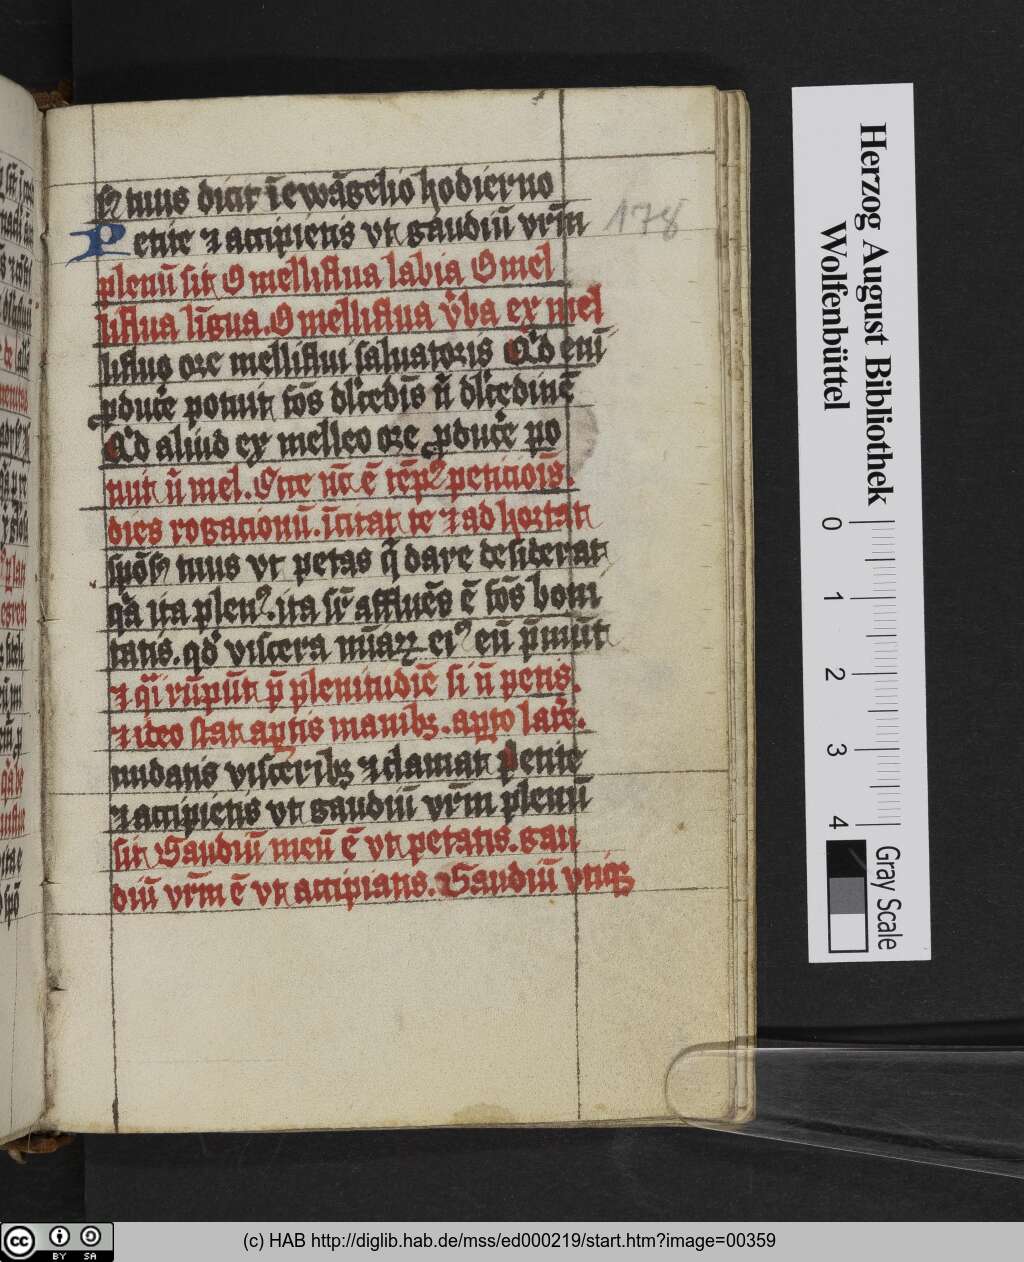 sꝰ tuus dicit ī ewāgelio hodierno
Petite ⁊ accipietis vt gaudiū vrm̄
178
plenū sit O melliflua labia O mel
liflua līgua. O melliflua v̄ba ex mel
lifluo ore melliflui saluatoris Qͥd eni
ꝓduce̅ potuit fōs dl̄cedīs n̄ dl̄cedinē
Qͥd aliud ex melleo ore ꝓduce̅ po
tuit n̄ mel. Ecce nūc ē tēpꝰ peticiōis.
dies rogacionū. īcitat te ⁊ ad hortat
spōsꝰ tuus vt petas q̄ dare desiderat
qͣ ita plenꝰ. ita sr̄ affluēs ē fōs boni
tatis. qd̓ viscera nūaꝝ eiꝰ eū p̄mūt
⁊ qͥi rūpūt p̄ plenitudīe si n̄ petis.
⁊ ideo stat aptis manibꝫ. apto late̅.
nudatis visceribꝫ ⁊ clamat Petite
⁊ accipietis vt gaudiū vrm̄ plenū
sit Gaudiū meū ē vt petatis. gau
diū vrm̄ ē vt accipiatis. Gaudiū vtiqꝫ
Herzog August Bibliothek
Wolfenbüttel
0 1 2 3 4
Gray Scale
cc BY SA
(c) HAB http://diglib.hab.de/mss/ed000219/start.htm?image=00359